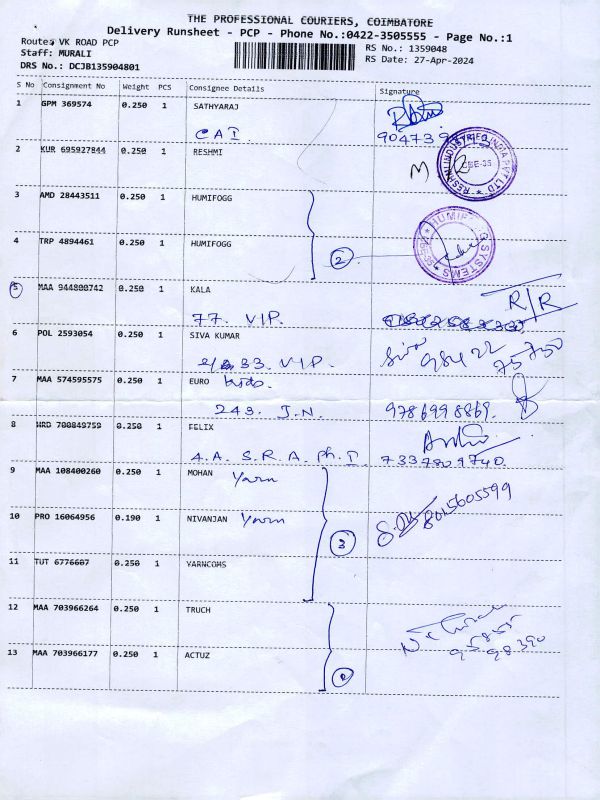 THE PROFESSIONAL COURIERS, COIMBATORE
Delivery Runsheet - PCP - Phone No.:0422-3505555 - Page No.:1
Route: VK ROAD PCP
RS No.: 1359048
Staff: MURALI
RS Date: 27-Apr-2024
DRS No.: DCJB135904801
S No Consignment No Weight PCS Consignee Details Signature
1 GPM 369574 0.250 1 SATHYARAJ
CAI.
90473
2 KUR 695927844 0.250 1 RESHMI
RESHMI INDUSTRIES INDIA PVT LTD
CBE-35
M
3 AMD 28443511 0.250 1 HUMIFOGG
4 TRP 4894461 0.250 1 HUMIFOGG
2
SYSTEMS
5 MAA 944800742 0.250 1 KALA
77. VIP.
R/R
6 POL 2593054 0.250 1 SIVA KUMAR
33. VIP.
Siva 984 22
75750
7 MAA 574595575 0.250 1 EURO Kids.
243. J.N.
9786998869.
8 WRD 700849759 0.250 1 FELIX
4.A. S.R.A. Ph.I.
733780 9740.
9 MAA 108400260 0.250 1 MOHAN Yarn
8015605599
10 PRO 16064956 0.190 1 NIVANJAN Yarn
3
11 TUT 6776607 0.250 1 YARNCOMS
12 MAA 703966264 0.250 1 TRUCH
95855
98390
13 MAA 703966177 0.250 1 ACTUZ